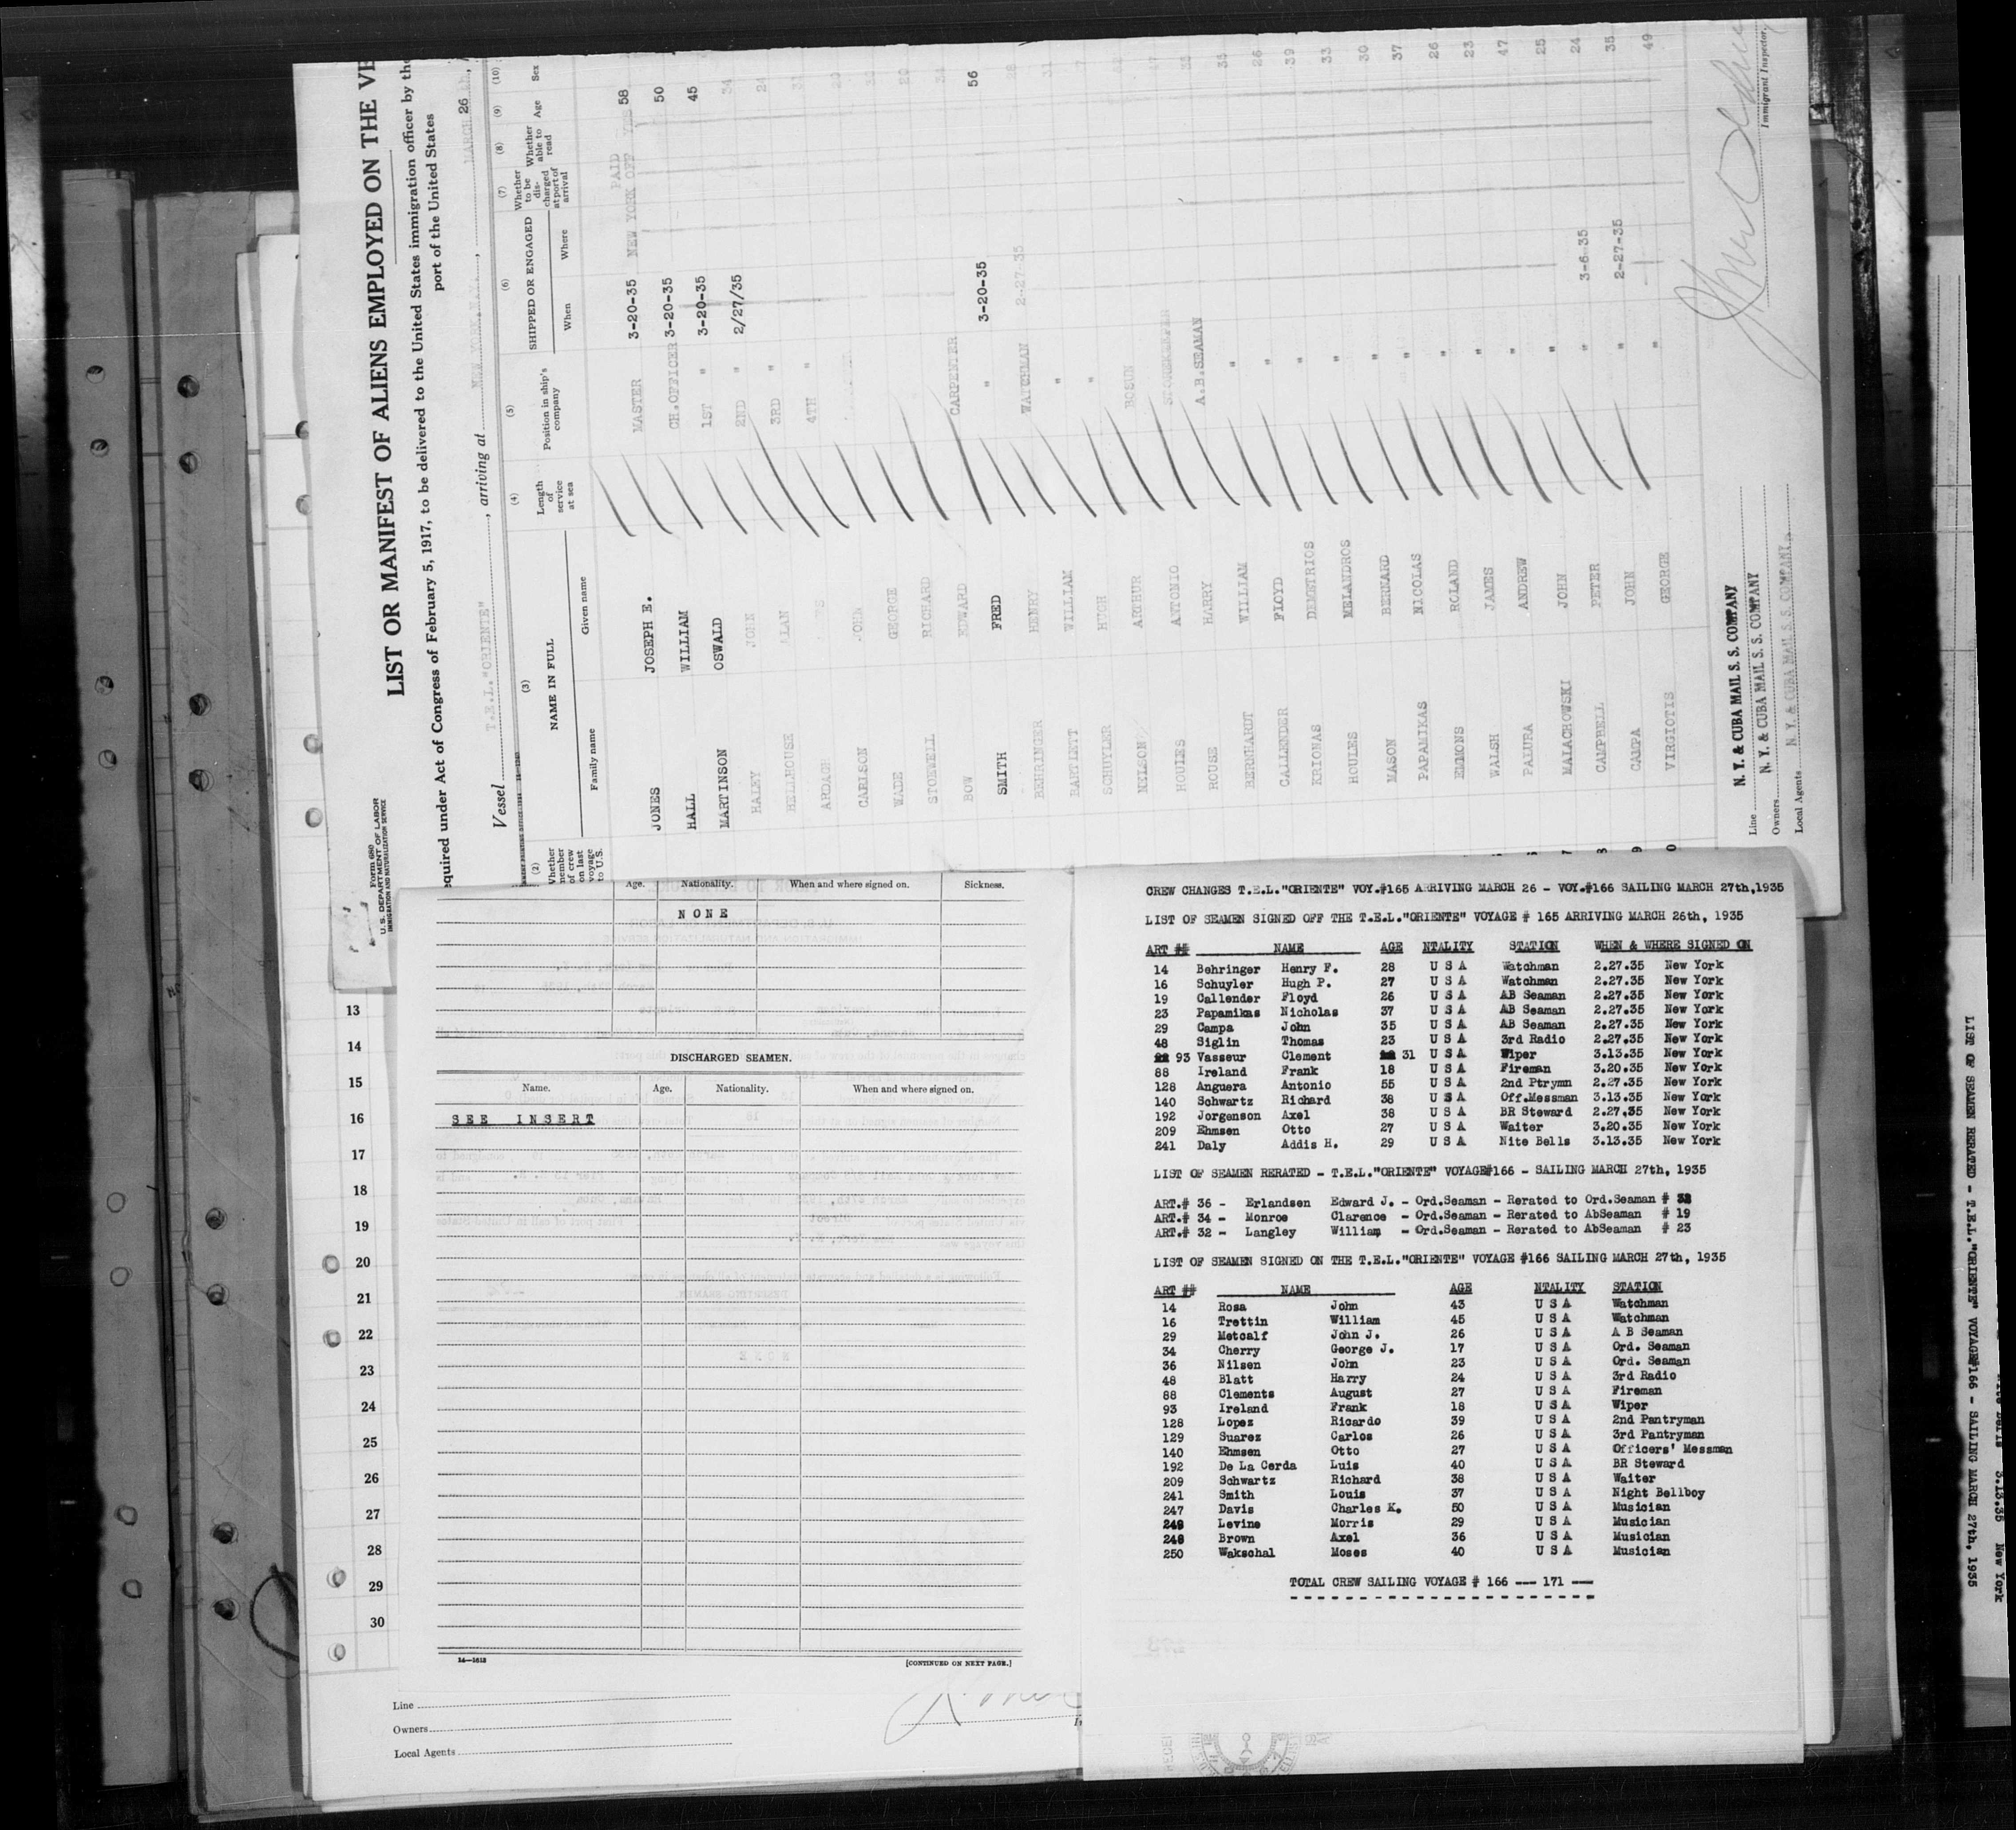 Form 680
U. S. DEPARTMENT OF LABOR
IMMIGRATION AND NATURALIZATION SERVICE
LIST OR MANIFEST OF ALIENS EMPLOYED ON THE VE
equired under Act of Congress of February 5, 1917, to be delivered to the United States immigration officer by the
port of the United States
Vessel T.E.L."ORIENTE", arriving at NEW YORK, MARCH 26
(2) (3) (4) (5) (6) (7) (8) (9) (10)
Whether member of crew on last voyage to U.S.
NAME IN FULL
Family name Given name
Length of service at sea
Position in ship's company
SHIPPED OR ENGAGED
When Where
Whether to be discharged at port of arrival
Whether able to read
Age
Sex
JONES JOSEPH E. MASTER 3-20-35 NEW YORK PAID OFF YES 58
HALL WILLIAM CH.OFFICER 3-20-35 50
MARTINSON OSWALD 1ST " 3-20-35 45
HALEY JOHN 2ND " 2/27/35 34
HELLHOUSE ALAN 3RD "
4TH "
CARLSON JOHN
WADE GEORGE
STOEWELL RICHARD
BOW EDWARD CARPENTER
SMITH FRED " 3-20-35 56
BEHRINGER HENRY WATCHMAN 2-27-35 28
BARTLETT WILLIAM "
SCHUYLER HUGH "
NELSON ARTHUR BOSUN
HOULES ANTONIO STOREKEEPER
ROUSE HARRY A.B.SEAMAN
BERNHARDT WILLIAM " 26
CALLENDER FLOYD " 39
KRIONAS DEMETRIOS " 33
HOULES MELANDROS " 30
MASON BERNARD " 37
PAPAMIKAS NICOLAS " 26
EMMONS ROLAND " 23
WALSH JAMES " 47
PALURA ANDREW " 25
MALACHOWSKI JOHN " 24
CAMPBELL PETER " 3-6-35 35
CAMPA JOHN " 2-27-35
VIRGIOTIS GEORGE " 49
Line N. Y. & CUBA MAIL S. S. COMPANY
Owners N. Y. & CUBA MAIL S. S. COMPANY
Local Agents N. Y. & CUBA MAIL S. S. COMPANY
Immigrant Inspector.
Age. Nationality. When and where signed on. Sickness.
NONE
DISCHARGED SEAMEN.
Name. Age. Nationality. When and where signed on.
SEE INSERT
13
14
15
16
17
18
19
20
21
22
23
24
25
26
27
28
29
30
14—1613 [CONTINUED ON NEXT PAGE.]
Line
Owners
Local Agents
CREW CHANGES T.E.L."ORIENTE" VOY.#165 ARRIVING MARCH 26 - VOY.#166 SAILING MARCH 27th,1935
LIST OF SEAMEN SIGNED OFF THE T.E.L."ORIENTE" VOYAGE # 165 ARRIVING MARCH 26th, 1935
ART ## NAME AGE NTALITY STATION WHEN & WHERE SIGNED ON
14 Behringer Henry F. 28 U S A Watchman 2.27.35 New York
16 Schuyler Hugh P. 27 U S A Watchman 2.27.35 New York
19 Callender Floyd 26 U S A AB Seaman 2.27.35 New York
23 Papamikas Nicholas 37 U S A AB Seaman 2.27.35 New York
29 Campa John 35 U S A AB Seaman 2.27.35 New York
48 Siglin Thomas 23 U S A 3rd Radio 2.27.35 New York
93 Vasseur Clement 31 U S A Wiper 3.13.35 New York
88 Ireland Frank 18 U S A Fireman 3.20.35 New York
128 Anguera Antonio 55 U S A 2nd Ptrymn 2.27.35 New York
140 Schwartz Richard 38 U S A Off.Messman 3.13.35 New York
192 Jorgenson Axel 38 U S A BR Steward 2.27.35 New York
209 Ehmsen Otto 27 U S A Waiter 3.20.35 New York
241 Daly Addis H. 29 U S A Nite Bells 3.13.35 New York
LIST OF SEAMEN RERATED - T.E.L."ORIENTE" VOYAGE#166 - SAILING MARCH 27th, 1935
ART.# 36 - Erlandsen Edward J. - Ord.Seaman - Rerated to Ord.Seaman #
ART.# 34 - Monroe Clarence - Ord.Seaman - Rerated to AbSeaman # 19
ART.# 32 - Langley William - Ord.Seaman - Rerated to AbSeaman # 23
LIST OF SEAMEN SIGNED ON THE T.E.L."ORIENTE" VOYAGE #166 SAILING MARCH 27th, 1935
ART ## NAME AGE NTALITY STATION
14 Rosa John 43 U S A Watchman
16 Trettin William 45 U S A Watchman
29 Metcalf John J. 26 U S A A B Seaman
34 Cherry George J. 17 U S A Ord. Seaman
36 Nilsen John 23 U S A Ord. Seaman
48 Blatt Harry 24 U S A 3rd Radio
88 Clements August 27 U S A Fireman
93 Ireland Frank 18 U S A Wiper
128 Lopez Ricardo 39 U S A 2nd Pantryman
129 Suarez Carlos 26 U S A 3rd Pantryman
140 Ehmsen Otto 27 U S A Officers' Messman
192 De La Cerda Luis 40 U S A BR Steward
209 Schwartz Richard 38 U S A Waiter
241 Smith Louis 37 U S A Night Bellboy
247 Davis Charles K. 50 U S A Musician
249 Levine Morris 29 U S A Musician
248 Brown Axel 36 U S A Musician
250 Wakschal Moses 40 U S A Musician
TOTAL CREW SAILING VOYAGE # 166 --- 171 ---
LIST OF SEAMEN RERATED - T.E.L."ORIENTE" VOYAGE#166 - SAILING MARCH 27th, 1935
3.13.35 New York